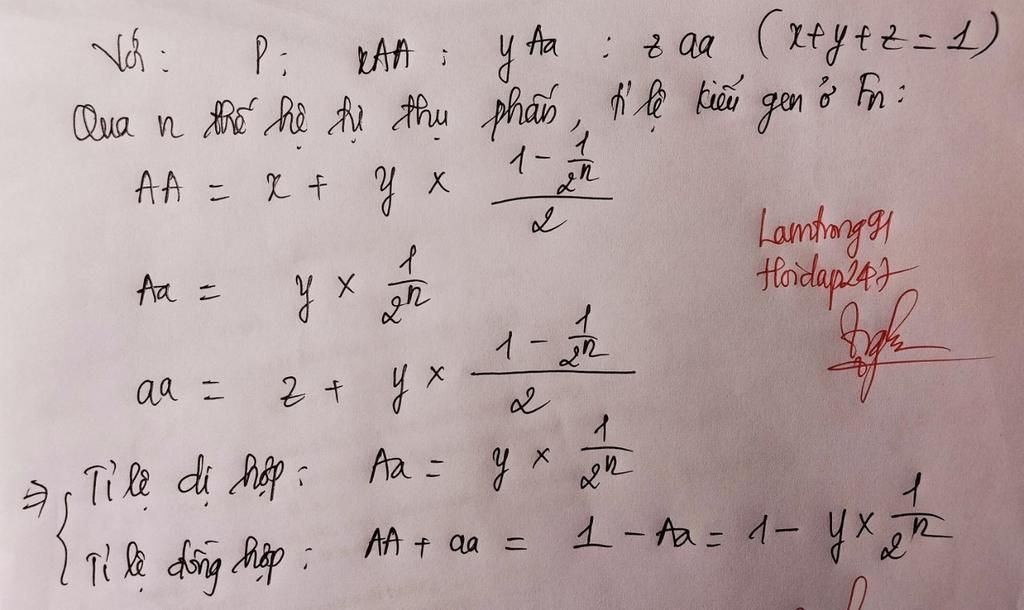 Với: P: xAA : yAa : z aa (x+y+z=1)
Qua n thế hệ tự thụ phấn, tỉ lệ kiểu gen ở Fn:
AA = x + y × (1 - 1/2^n)/2
Aa = y × 1/2^n
aa = z + y × (1 - 1/2^n)/2
⇒ { Tỉ lệ dị hợp: Aa = y × 1/2^n
Tỉ lệ đồng hợp: AA + aa = 1 - Aa = 1 - y × 1/2^n
Lamtrong91
Hoidap247